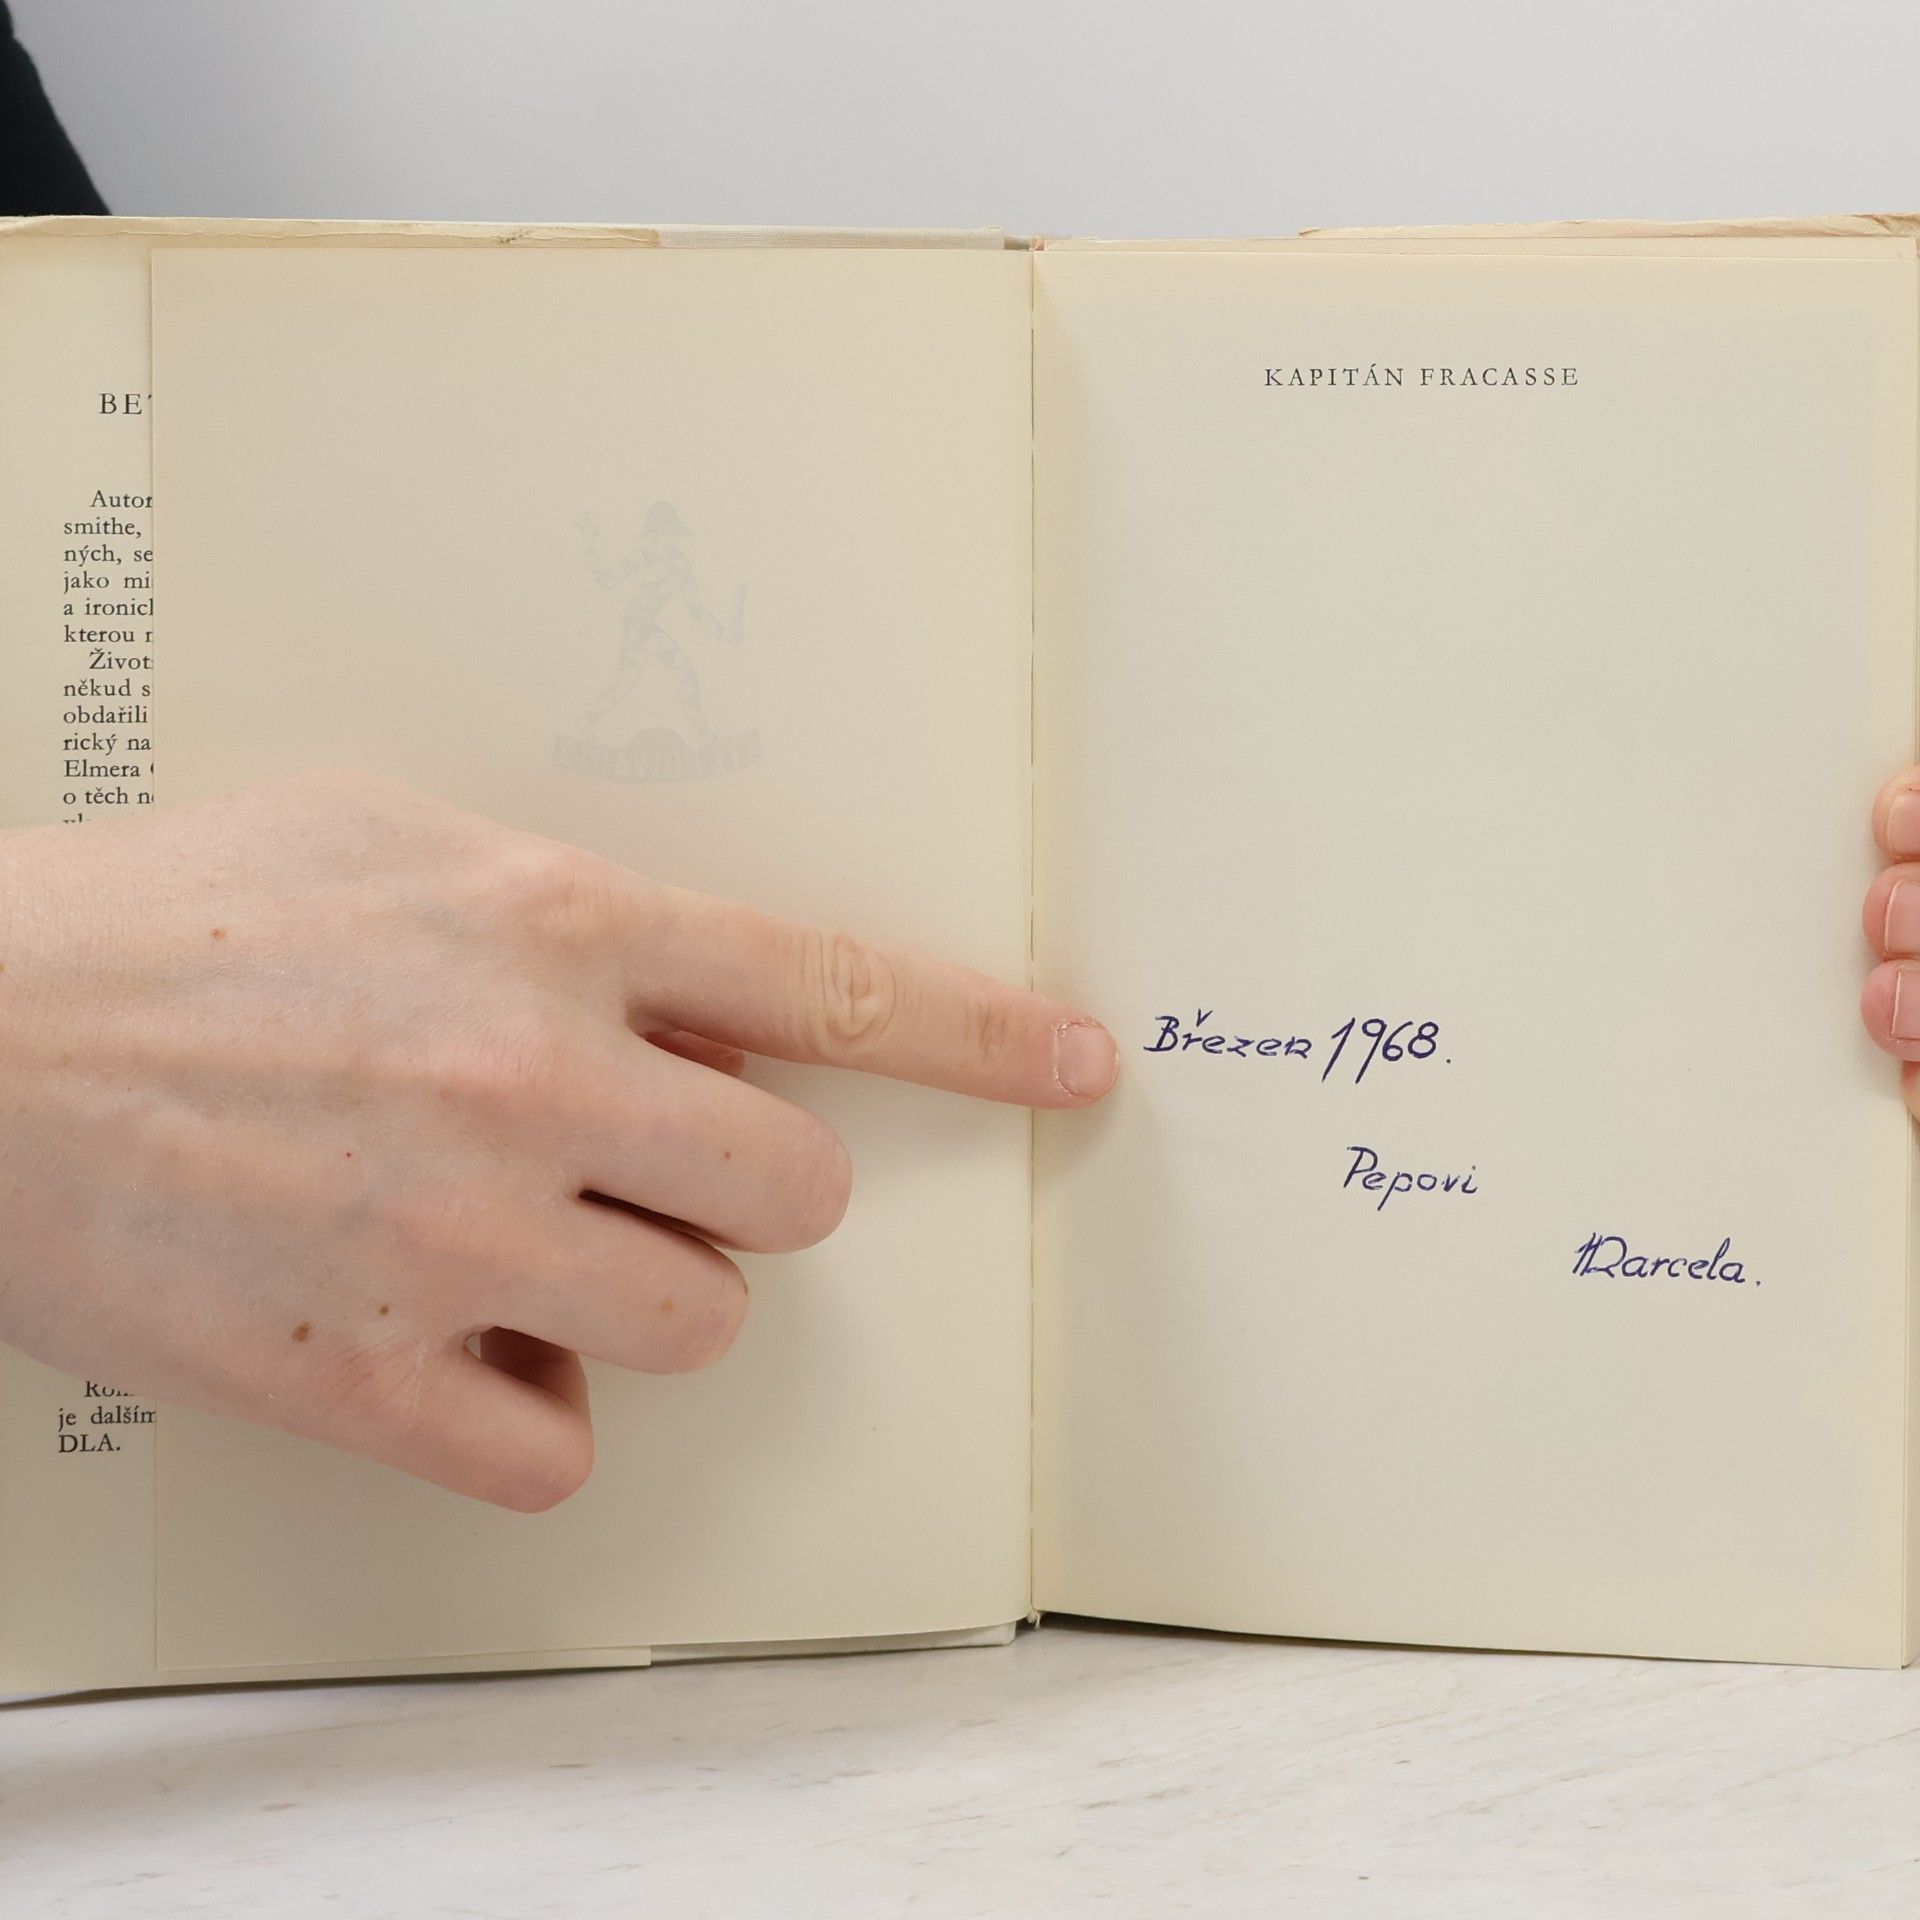 BE
Autor
smithe,
ných, se
jako mi
a ironic
kterou
Život
někud s
obdařili
rický na
Elmera
o těch
je dalším
DLA.
KAPITÁN FRACASSE
Březen 1968.
Pepovi
Marcela.